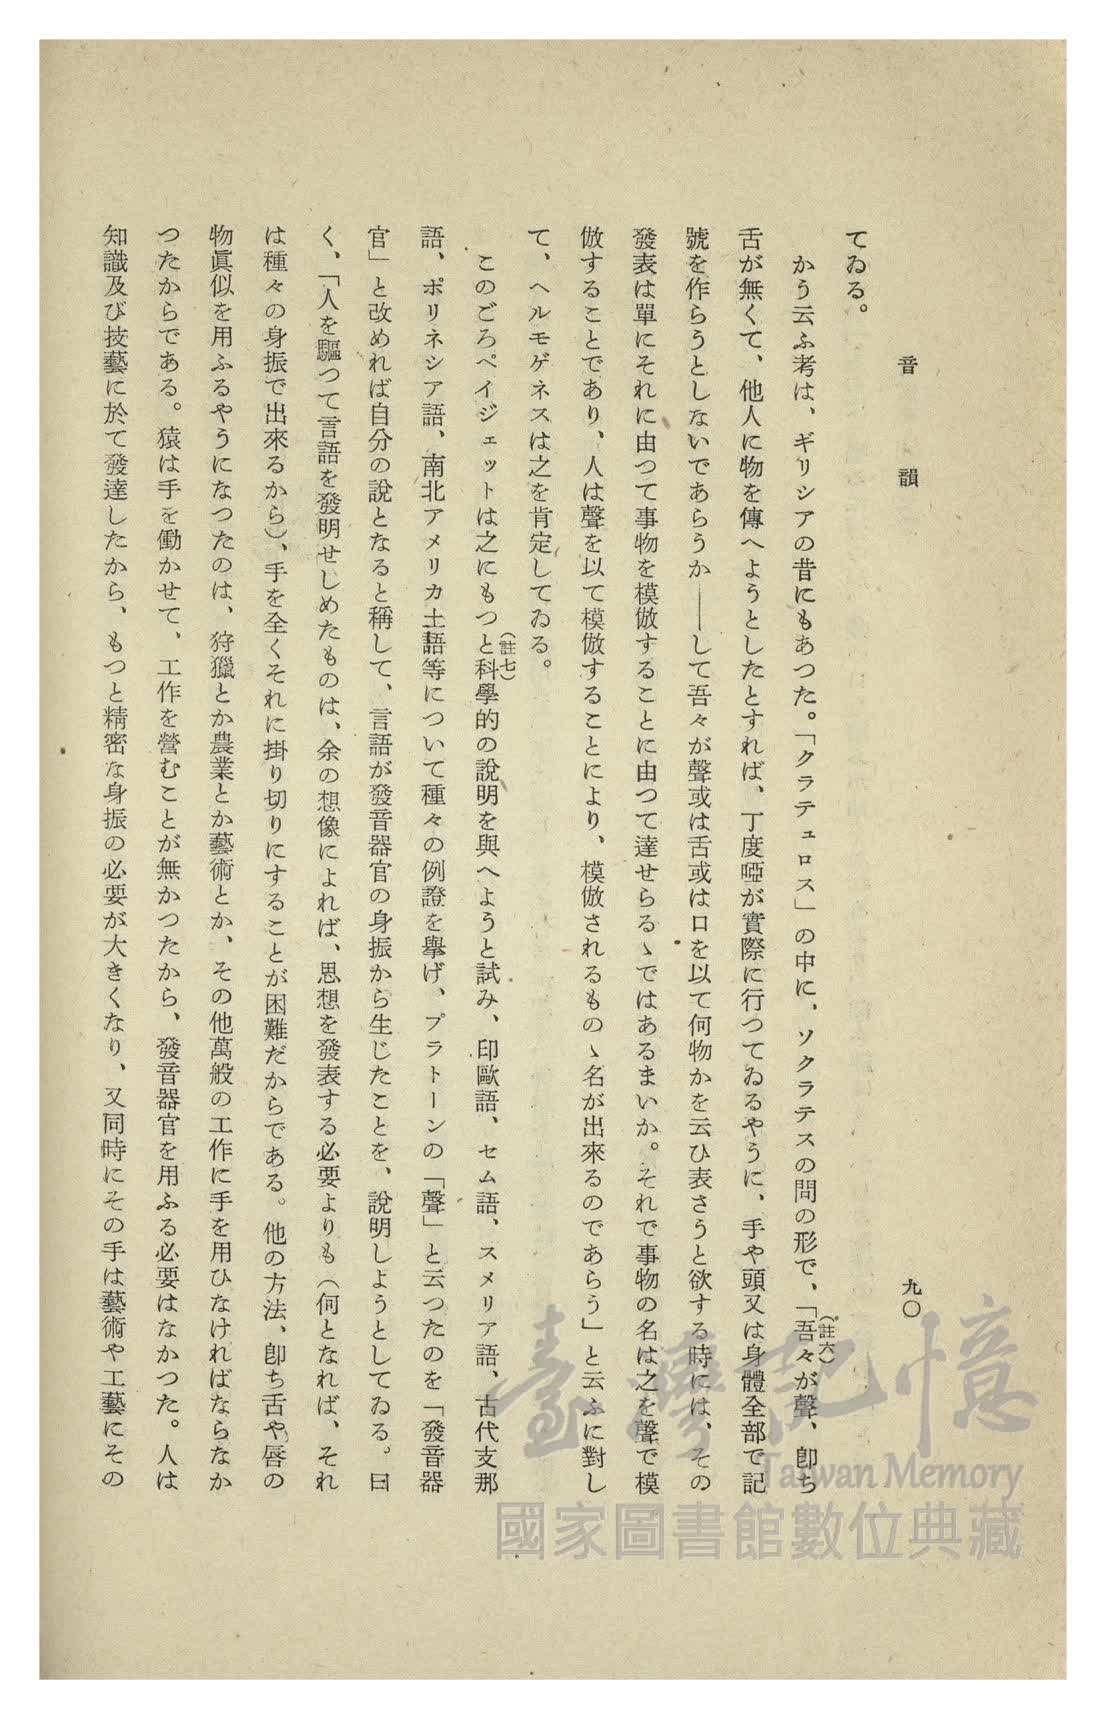 音韻
九〇
てゐる。
かう云ふ考は、ギリシアの昔にもあつた。「クラテュロス」の中に、ソクラテスの問の形で、「吾々が聲、卽ち
(註六)
舌が無くて、他人に物を傳へようとしたとすれば、丁度啞が實際に行つてゐるやうに、手や頭又は身體全部で記
號を作らうとしないであらうか――して吾々が聲或は舌或は口を以て何物かを云ひ表さうと欲する時には、その
發表は單にそれに由つて事物を模倣することに由つて達せらるゝではあるまいか。それで事物の名は之を聲で模
倣することであり、人は聲を以て模倣することにより、模倣されるものゝ名が出來るのであらう」と云ふに對し
て、ヘルモゲネスは之を肯定してゐる。
(註七)
このごろペイジェットは之にもつと科學的の說明を與へようと試み、印歐語、セム語、スメリア語、古代支那
語、ポリネシア語、南北アメリカ土語等について種々の例證を擧げ、プラトーンの「聲」と云つたのを「發音器
官」と改めれば自分の說となると稱して、言語が發音器官の身振から生じたことを、說明しようとしてゐる。曰
く、「人を驅つて言語を發明せしめたものは、余の想像によれば、思想を發表する必要よりも（何となれば、それ
は種々の身振で出來るから）、手を全くそれに掛り切りにすることが困難だからである。他の方法、卽ち舌や唇の
物眞似を用ふるやうになつたのは、狩獵とか農業とか藝術とか、その他萬般の工作に手を用ひなければならなか
つたからである。猿は手を働かせて、工作を營むことが無かつたから、發音器官を用ふる必要はなかつた。人は
知識及び技藝に於て發達したから、もつと精密な身振の必要が大きくなり、又同時にその手は藝術や工藝にその
臺灣記憶
Taiwan Memory
國家圖書館數位典藏